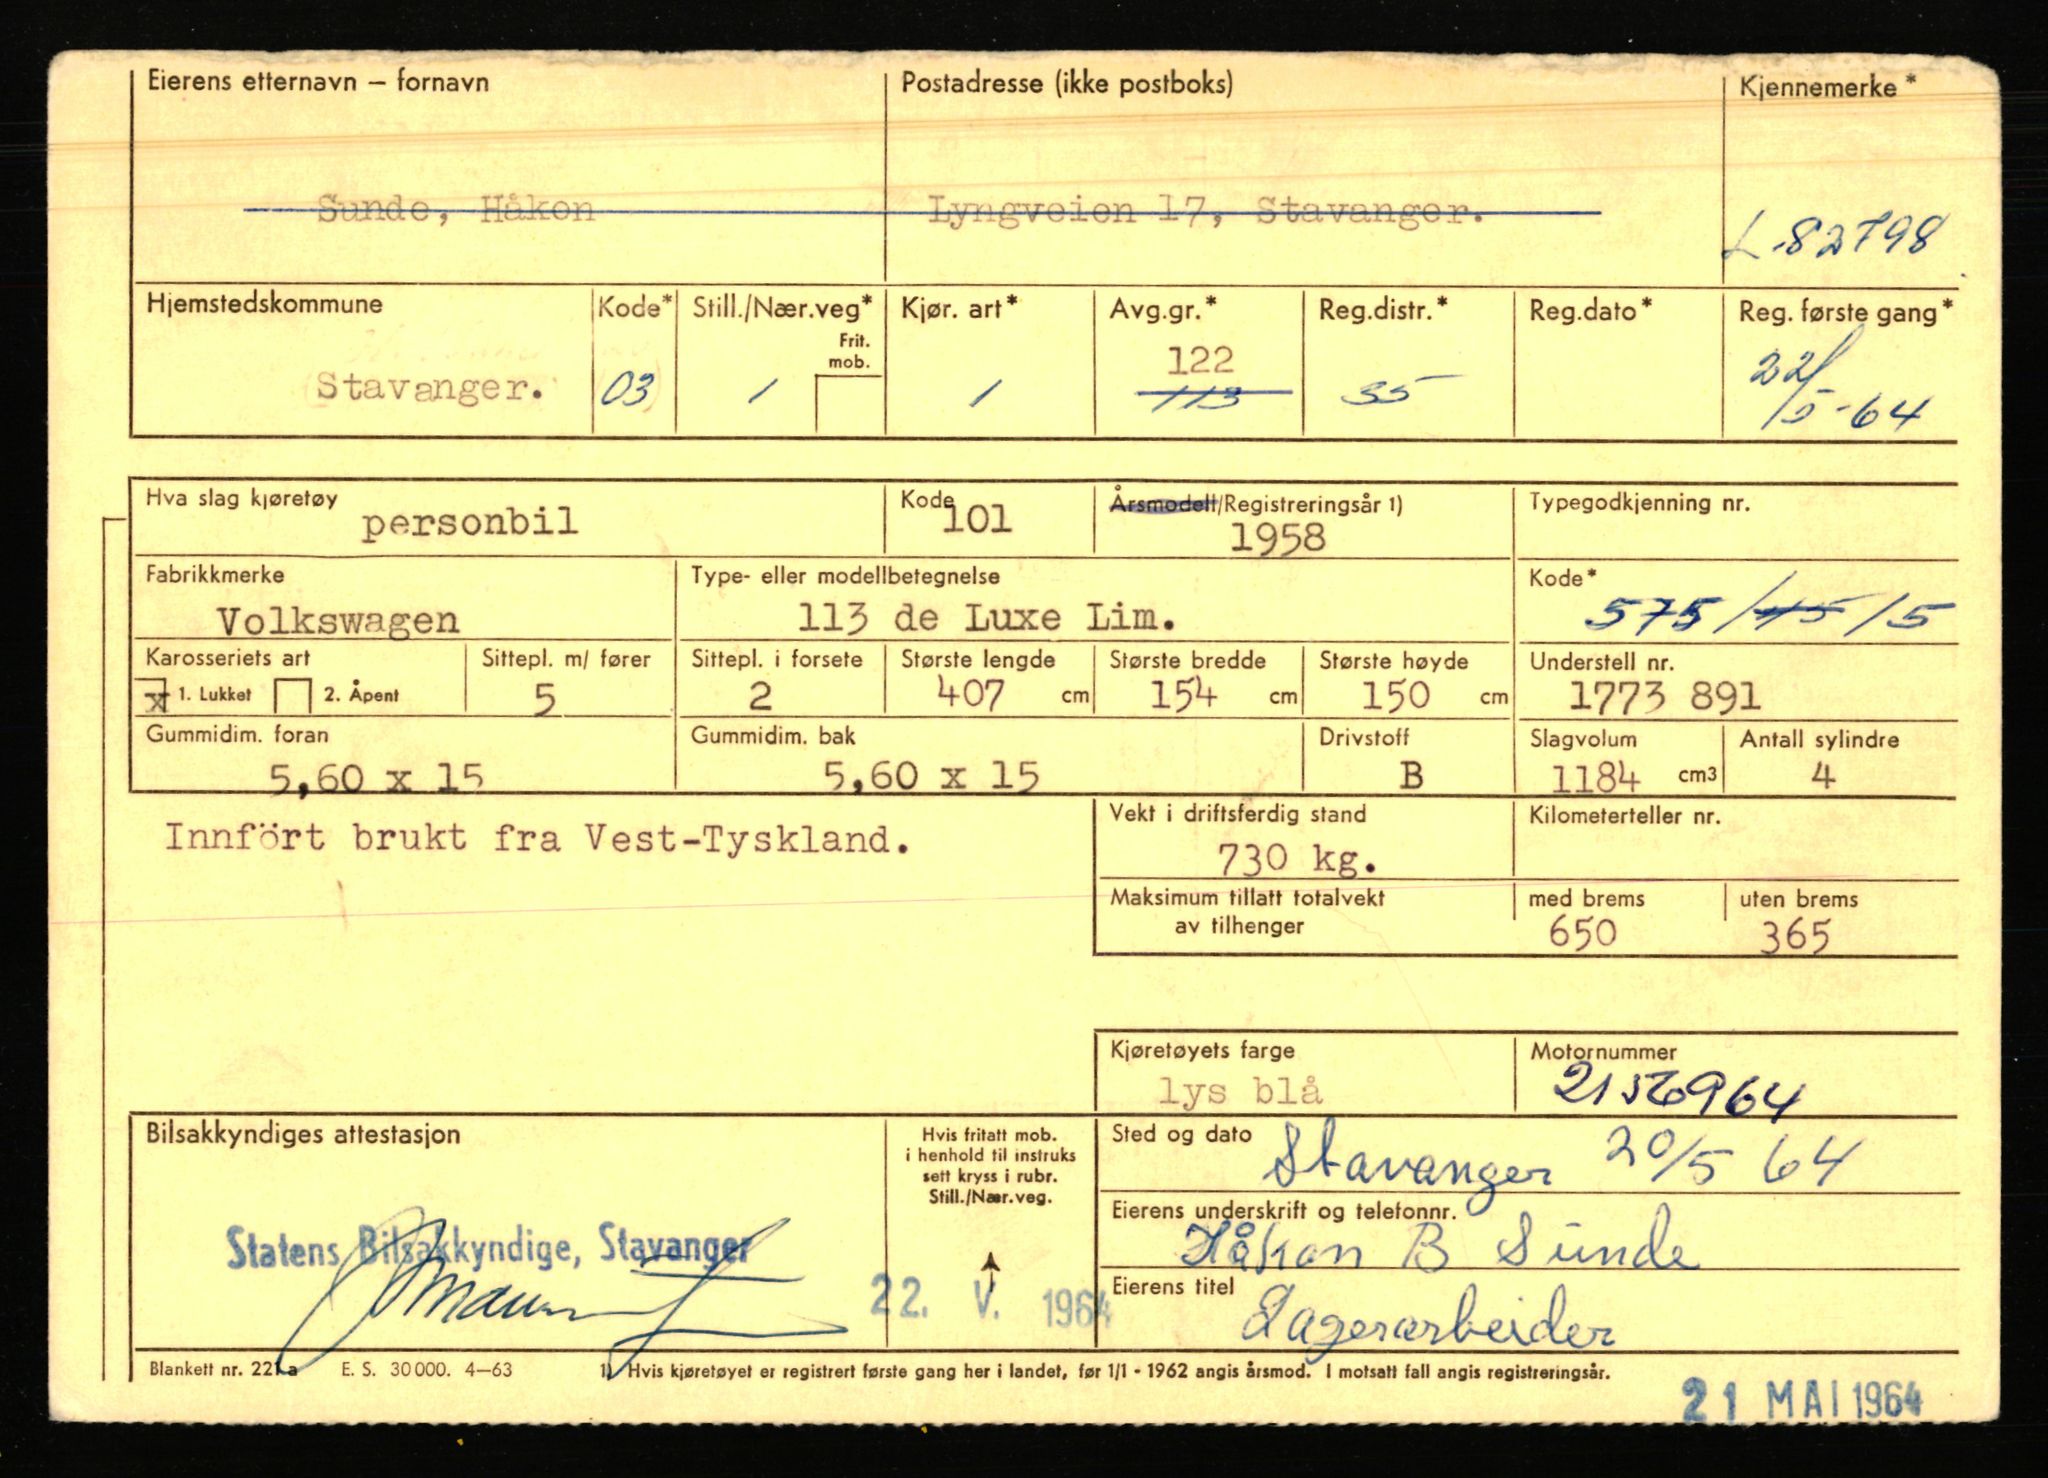 Eierens etternavn – fornavn Postadresse (ikke postboks) Kjennemerke*
Sunde, Håkon Lyngveien 17, Stavanger. L-82798
Hjemstedskommune Kode* Still./Nær.veg* Kjør. art* Avg.gr.* Reg.distr.* Reg.dato* Reg. første gang*
Frit.
mob.
122
Stavanger. 03 1 1 113 35 22/5-64
Hva slag kjøretøy Kode Årsmodell/Registreringsår 1) Typegodkjenning nr.
personbil 101 1958
Fabrikkmerke Type- eller modellbetegnelse Kode*
Volkswagen 113 de Luxe Lim. 575/45/5
Karosseriets art Sittepl. m/ fører Sittepl. i forsete Største lengde Største bredde Største høyde Understell nr.
x 1. Lukket 2. Åpent 5 2 407 cm 154 cm 150 cm 1773 891
Gummidim. foran Gummidim. bak Drivstoff Slagvolum Antall sylindre
5,60 x 15 5,60 x 15 B 1184 cm3 4
Innfört brukt fra Vest-Tyskland.
Vekt i driftsferdig stand Kilometerteller nr.
730 kg.
Maksimum tillatt totalvekt med brems uten brems
av tilhenger 650 365
Kjøretøyets farge Motornummer
lys blå 2156964
Bilsakkyndiges attestasjon
Hvis fritatt mob.
i henhold til instruks
sett kryss i rubr.
Still./Nær.veg.
Sted og dato Stavanger 20/5 64
Eierens underskrift og telefonnr.
Håkon B Sunde
Statens Bilsakkyndige, Stavanger
22. V. 1964
Eierens titel
Lagerarbeider
Blankett nr. 221a E. S. 30000. 4–63 1) Hvis kjøretøyet er registrert første gang her i landet, før 1/1 - 1962 angis årsmod. I motsatt fall angis registreringsår.
21 MAI 1964